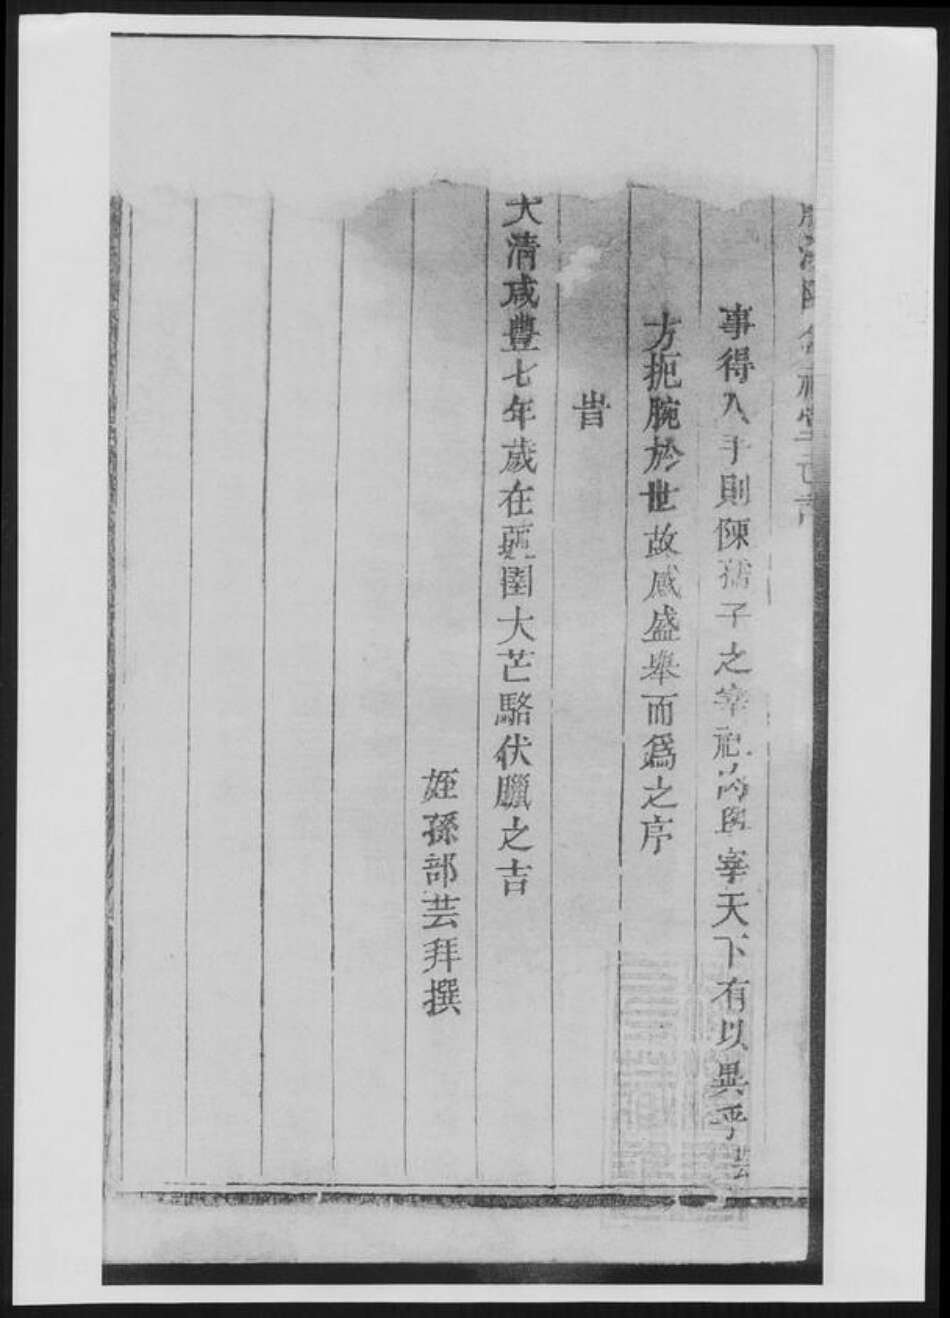 事得入手則陳孺子之宰社與宰天下有以異乎芸
方扼腕於世故感盛舉而爲之序
旹
大清咸豐七年歲在彊圉大芒駱伏臘之吉
姪孫部芸拜撰